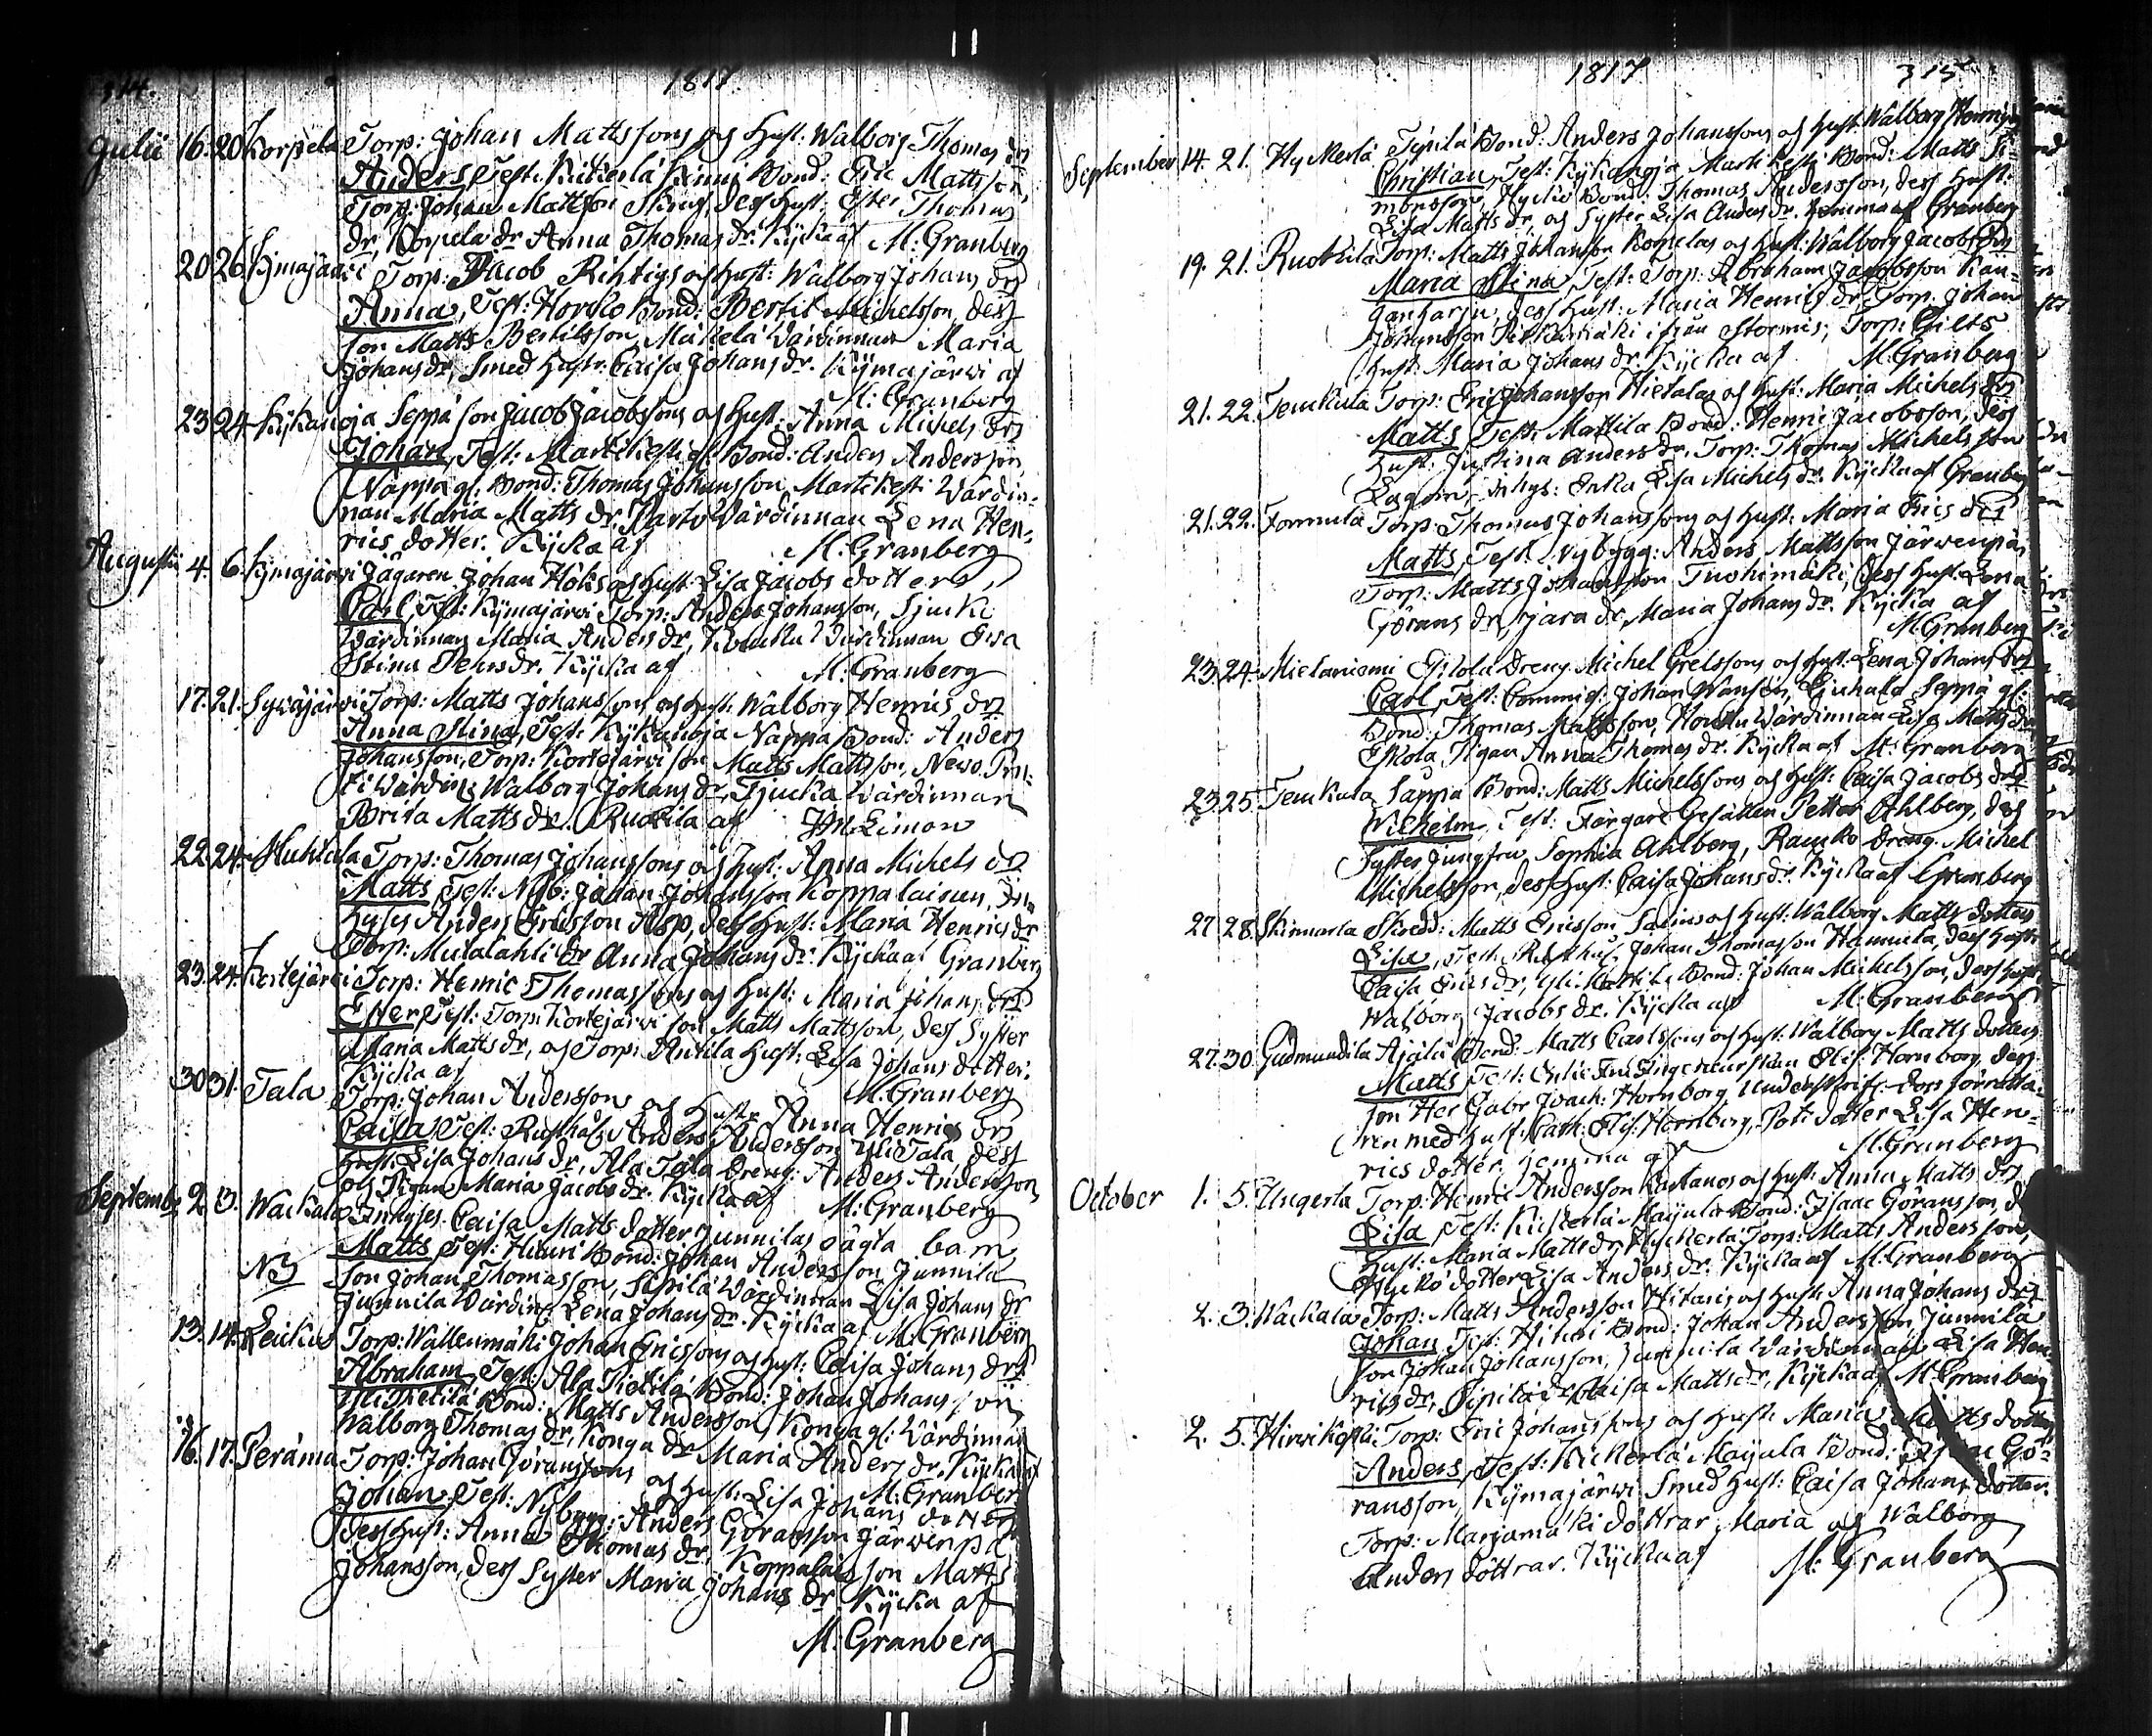 314. 1817.
Julii 16. 20 Korpela Torp: Johan Mattssons og Hust: Walborg Thomas drs
Anders, Test: Kickerlä Bond: Eric Mattsson,
Torp: Johan Mattsson Skrug, dess Hust: Ester Thomas
dr, Korpela dr Anna Thomas dr. Kycka af M: Granberg
20. 26. Kymajärwi Torp: Jacob Richtigs og Hust: Walborg Johans drs
Anna, Test: Horcko Bond: Bertil Michelsson, dess
son Matts Bertilsson, Mäkelä Wärdinnan Maria
Johans dr, Smed Hustr: Caisa Johans dr. Kymajärwi af
M: Granberg
23. 24. Kykänoja Seppä son Jacob Jacobssons og Hust: Anna Michels drs
Johan, Test: Martikesti gl. Bond: Anders Andersson,
Nappa gl. Bond: Thomas Johansson, Martikesti Wärdin-
nan Maria Matts dr, Wärdinnan Lena Hen-
rics dotter. Kycka af M: Granberg
Augustii 4. 6. Kymajärwi Jägaren Johan Höks og Hust: Lisa Jacobs dotters
Carl, Test: Kymajärwi Torp: Anders Johansson,
Wärdinnan Maria Anders dr, Wärdinnan Ewa
Stina Pehrs dr. Kycka af M: Granberg
17. 21. Sywäjärwi Torp: Matts Johanssons og Hust: Walborg Henrics drs
Anna Stina, Test: Kykänoja Nappa Bond: Anders
Johansson, Torp: Kortejärwi son Matts Mattsson,
Wärdin: Walborg Johans dr, Wärdinnan
Brita Matts dr. Ruokila af Limon
22. 24. Huhtala Torp: Thomas Johanssons og Hust: Anna Michels drs
Matts, Test: Nyb: Johan Johansson Koppalainen, In-
hyses Anders Ericsson Asp, dess Hust: Maria Henrics dr
Torp: Mutalahti dr Anna Johans dr. Kycka af Granberg
23. 24. Kortejärwi Torp: Henric Thomassons og Hust: Maria Johans drs
Ester, Test: Torp: Kortejärwi son Matts Mattsson, dess Syster
Maria Matts dr, og Torp: Antila Hust: Lisa Johans dotter.
Kycka af M: Granberg
30. 31. Tala Torp: Johan Anderssons og Hustr: Anna Henrics drs
Caisa, Test: Rusthål: Anders Andersson Yli Tala, dess
Hust: Lisa Johans dr, Ala Tala Dreng: Anders Andersson
og Pigan Maria Jacobs dr. Kycka af M: Granberg
September 2. 3. Wackala Inhyses Caisa Matts dotter Junnilas oägta barn
Matts, Test: Hituri Bond: Johan Andersson Junnila
son Johan Thomasson, Sipilä Wärdinnan Lisa Johans dr
Junnila Wärdin: Lena Johans dr. Kycka af M: Granberg
13. 14. Leikus Torp: Wallenmäki Johan Ericssons og Hust: Caisa Johans drs
Abraham, Test: Ala Pietilä Bond: Johan Johansson,
Yli Pietilä Bond: Matts Andersson, Konga gl: Wärdinnan
Walborg Thomas dr, Konga dr Maria Anders dr. Kycka af
M: Granberg
16. 17. Peräma Torp: Johan Göranssons og Hust: Lisa Johans dotters
Johan, Test: Nybygg: Anders Göransson Järwenpä
dess Hust: Anna Thomas dr, Koppalais son Matts
Johansson, dess Syster Maria Johans dr. Kycka af
M: Granberg
1817 315
September 14. 21. Hykkerlä Sipilä Bond: Anders Johanssons og Hust: Walborg Henrics
Christian, Test: Kykänoja Martikesti Bond: Matts Si-
monsson, Hyckiö Bond: Thomas Andersson, dess Hust:
Lisa Matts dr, og Syster Lisa Anders dr. hemma af Granberg
19. 21. Ruokila Torp: Matts Johansson Kompelas og Hust: Walborg Jacobs drs
Maria Stina, Test: Torp: Abraham Jacobsson Kan-
ganharju, dess Hust: Maria Henrics dr, Torp. Johan
Johansson ifrån Stormis, Torp: Gilts
Hust: Maria Johans dr. Kycka af M: Granberg
21. 22. Teurkula Torp: Eric Johansson Hietalas og Hust: Maria Michels drs
Matts, Test: Mattila Bond: Henric Jacobsson, dess
Hust: Justina Anders dr, Torp: Thomas Michelsson
Lagom, Inhys: Enka Lisa Michels dr. Kycka af Granberg
21. 22. Formula Torp: Thomas Johanssons og Hust: Maria Erics drs
Matts, Test: Nybygg: Anders Mattsson Järwenpä,
Torp: Matts Johansson Tuohimäki, dess Hust: Lena
Görans dr, Maria Johans dr. Kycka af
M: Granberg
23. 24. Mietaniemi Eskola Dreng Michel Grelssons og Hust: Lena Johans drs
Carl, Test: Commiss: Johan Wansen, Ljuhala Seppä gl.
Bond: Thomas Mattsson, Houku Wärdinnan Lisa Matts dr
Eskola Pigan Anna Thomas dr. Kycka af M: Granberg
23. 25. Teurkula Sappa Bond: Matts Michelssons og Hust: Caisa Jacobs drs
Wilhelm, Test: Färgare Gesällen Petter Ahlberg, dess
Syster Jungfru Sophia Ahlberg, Rauko Dreng Michel
Michelsson, dess Hust: Caisa Johans dr. Kycka af Granberg
27. 28. Skinnarla Skredd: Matts Ericsson Salins og Hust: Walborg Matts dotters
Lisa, Test: Rusthål. Johan Thomasson Hannula, dess Hust:
Caisa Erics dr, Yli Bond: Johan Michelsson, dess Hust:
Walborg Jacobs dr. Kycka af M: Granberg
27. 30. Gudmundila Ajälä Bond: Matts Carlssons og Hust: Walborg Matts dotters
Matts, Test: Enke Fru Ingeneurskan Elis: Hornborg, dess
son Her Gabr: Joach: Hornborg, Underskrif: dom förrätta-
ren med Hust: Cath: Elis: Hornborg, dotter Lisa Hen-
rics dotter. hemma af M: Granberg
October 1. 5. Ungerla Torp: Henric Andersson Kastanos og Hust: Anna Matts drs
Lisa, Test: Kickerlä Maijala Bond: Isaac Göransson,
Hust: Maria Matts dr, Hyckerlä Torp: Matts Andersson,
Hyckiö dotter Lisa Anders dr. Kycka af M: Granberg
2. 3. Wackala Torp: Matts Andersson Hitaris og Hust: Anna Johans drs
Johan, Test: Hituri Bond: Johan Andersson, Junnila
son Johan Johansson, Junnila Wärdinnan Lisa Hen-
rics dr, Sipilä dr Caisa Matts dr. Kycka af M: Granberg
2. 5. Hirwikoski Torp: Eric Johanssons og Hust: Maria Matts dotters
Anders, Test: Kickerlä Maijala Bond: Isaac Gö-
ransson, Kymajärwi Smed Hust: Caisa Johans dotter.
Torp: Marjamäki döttrar Maria og Walborg
Anders döttrar. Kycka af M: Granberg